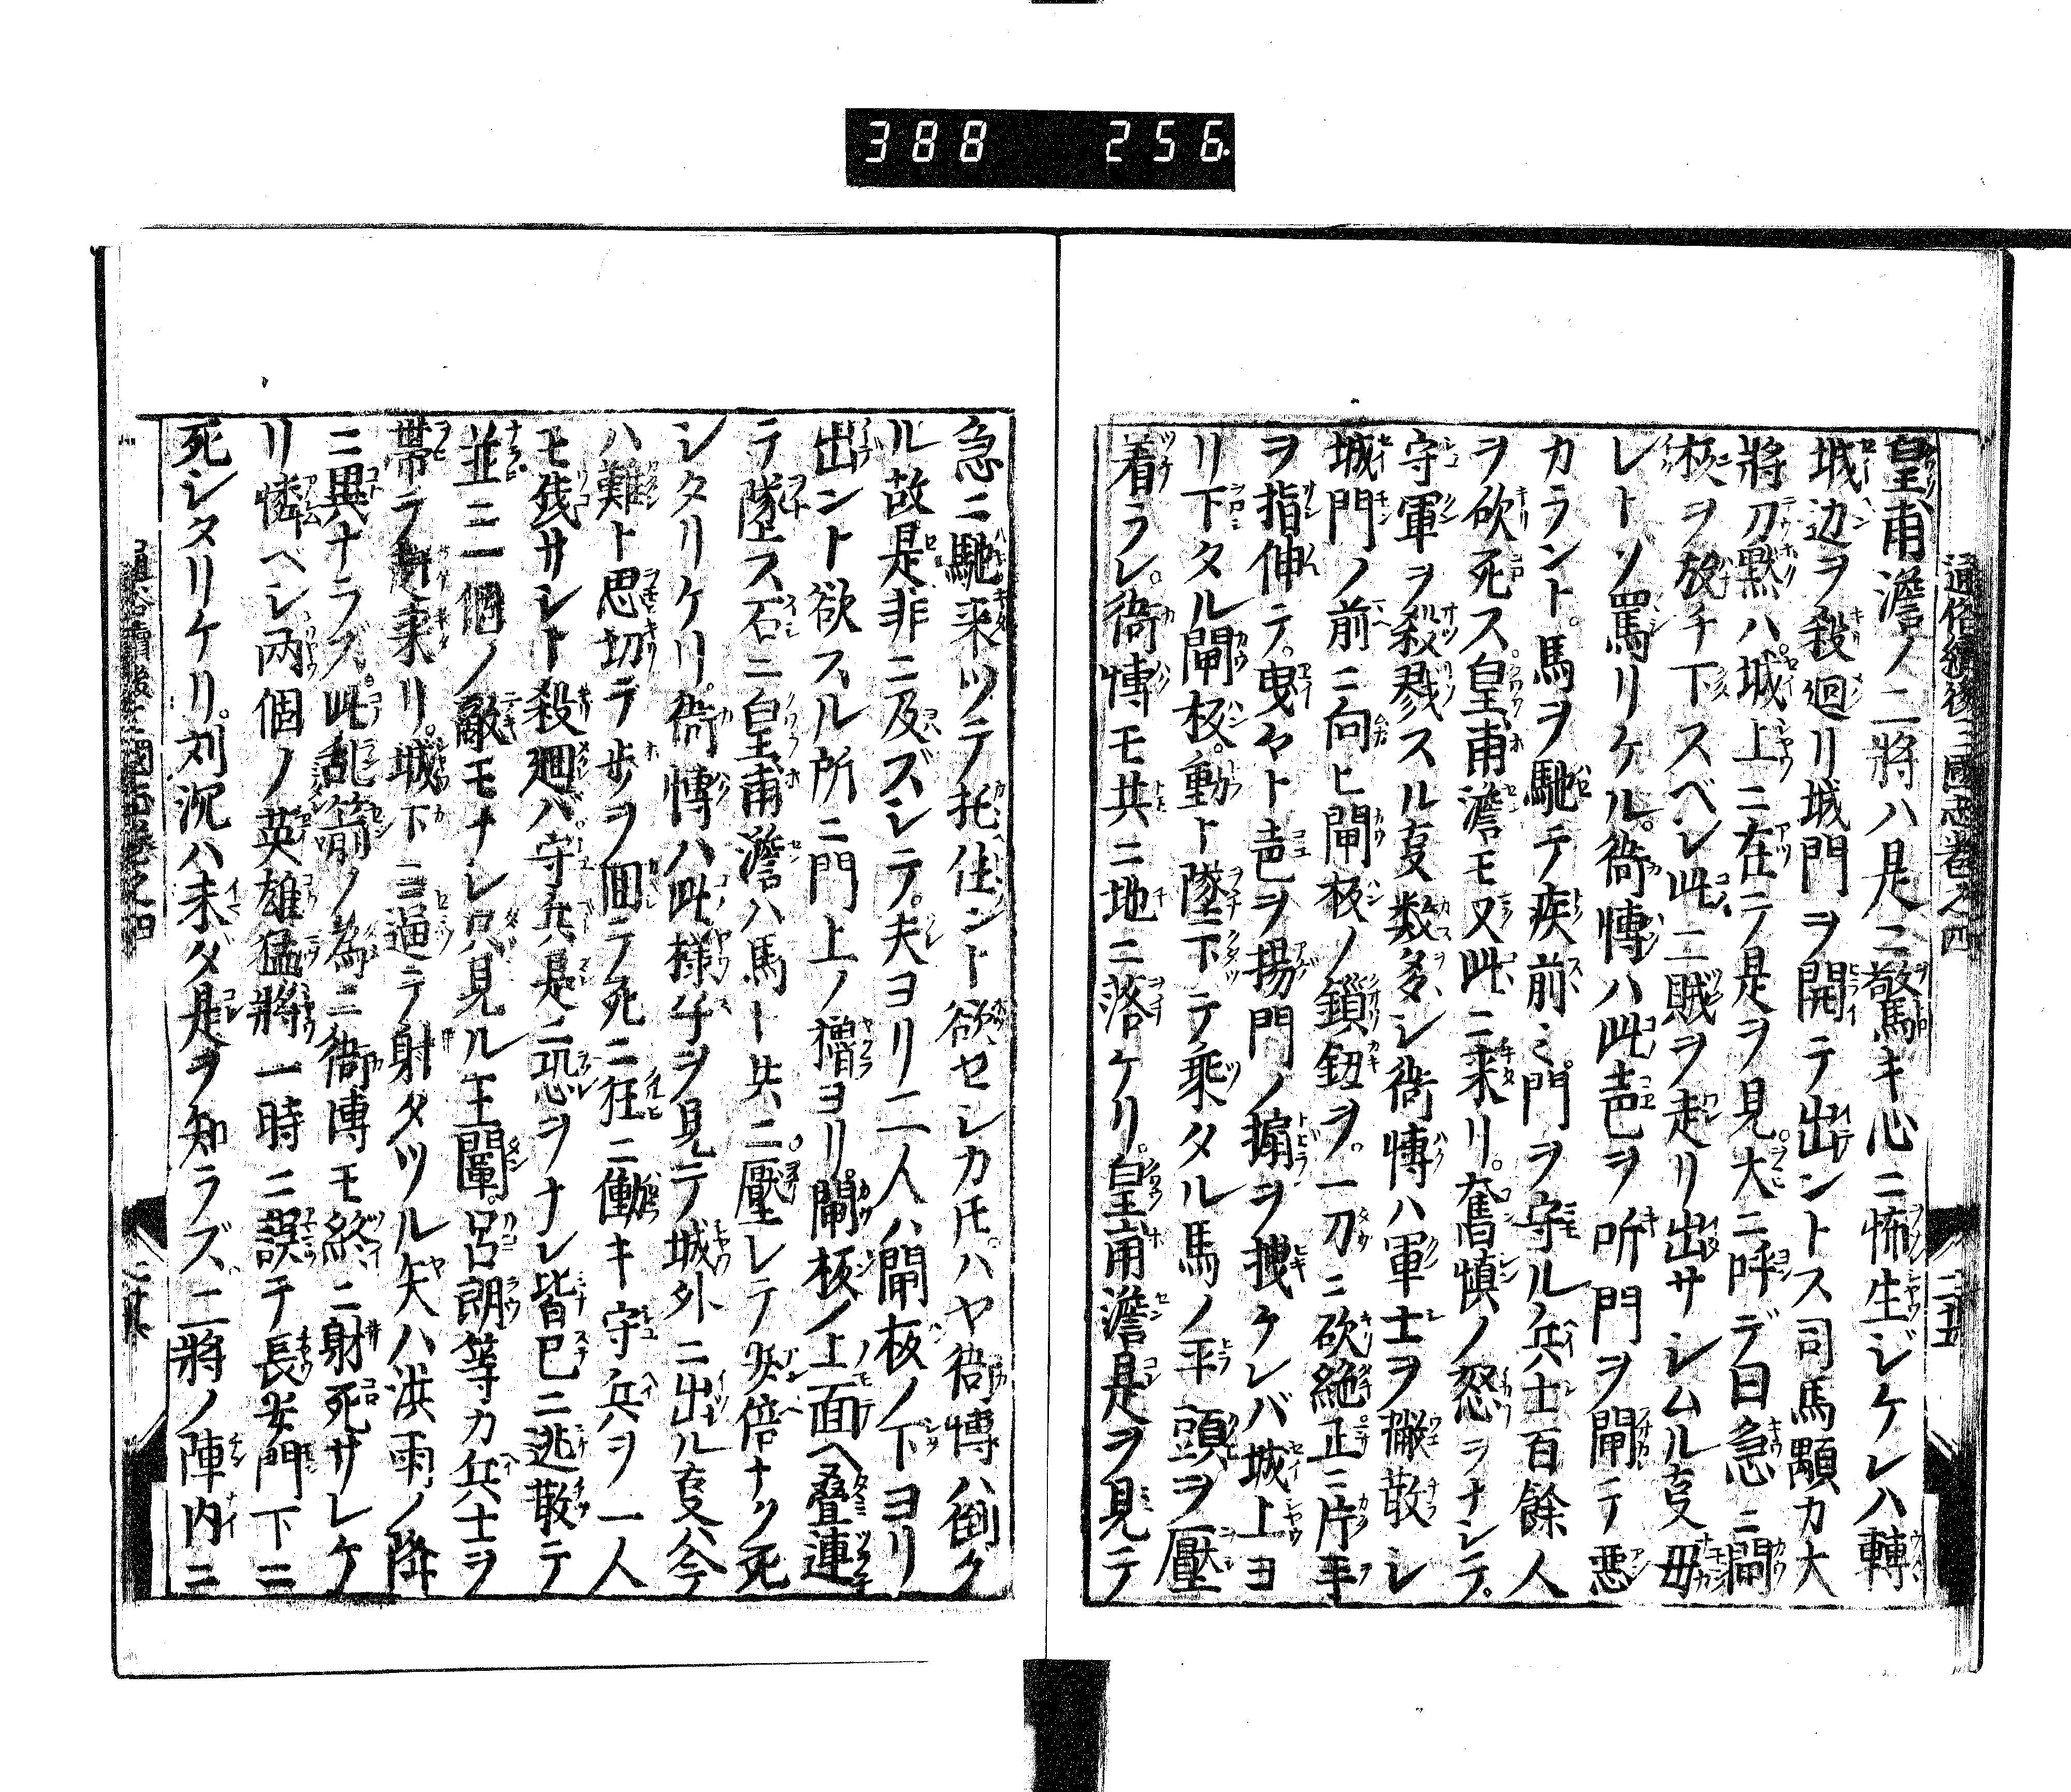 388 256
通俗續後三國志卷之四 二十五
皇甫澹ノ二將ハ是ニ驚キ心ニ怖生ジケレハ轉
城辺ヲ殺廻リ城門ヲ開テ出ントス司馬顒カ大
將刀黙ハ城上ニ在テ是ヲ見大ニ呼デ曰急ニ閘
板ヲ放チ下スベシ此二賊ヲ走リ出サシムル㕝毋
レトゾ罵リケル。衙慱ハ此声ヲ听門ヲ閘テ悪
カラント。馬ヲ馳テ疾前ミ門ヲ守ルノ兵士百餘人
ヲ砍死ス皇甫澹モ又此ニ来リ。奮慎ノ怒ヲナシテ。
守軍ヲ殺戮スル㕝数多シ衙慱ハ軍士ヲ撇散シ
城門ノ前ニ向ヒ閘板ノ鎖鈕ヲ。一刀ニ砍絶正ニ片手
ヲ指伸テ。曳ヤト声ヲ揚門ノ搧ヲ拽ケレバ城上ヨ
リ下タル閘板。動ト墜下テ乘タル馬ノ平頭ヲ壓
着ラレ。衙慱モ共ニ地ニ落ケリ。皇甫澹是ヲ見テ
急ニ馳来ツテ托住ント欲セシカ𪜈。ハヤ衙慱ハ倒ク
ル故是非ニ及ズシテ。夫ヨリ二人ハ閘板ノ下ヨリ
出ント欲スル所ニ門上ノ櫓ヨリ。閘板ノ上面ヘ叠連
テ墜ス石ニ皇甫澹ハ馬ト共ニ。壓レテ矢倍ナク死
シタリケリ。衙慱ハ此様子ヲ見テ城外ニ出ル㕝ハ今
ハ難ト思切テ歩ヲ回テ死ニ狂ニ働キ守兵ヲ一人
モ伐サレト殺廻バ守兵是ニ恐ヲナシ皆已ニ逃散テ
並ニ一個ノ敵モナシ只見ル王闡。呂朗等カ兵士ヲ
帯テ趕来リ。城下ニ逼テ射タツル矢ハ洪雨ノ降
ニ異ナラズ。此乱箭ノ為ニ衙慱モ終ニ射死サレケ
リ憐ベシ兩個ノ英雄猛將一時ニ誤テ長安門下ニ
死シタリケリ。刘沉ハ未タ是ヲ知ラズ二將ノ陣内ニ
通俗續後三國志卷之四 二十六